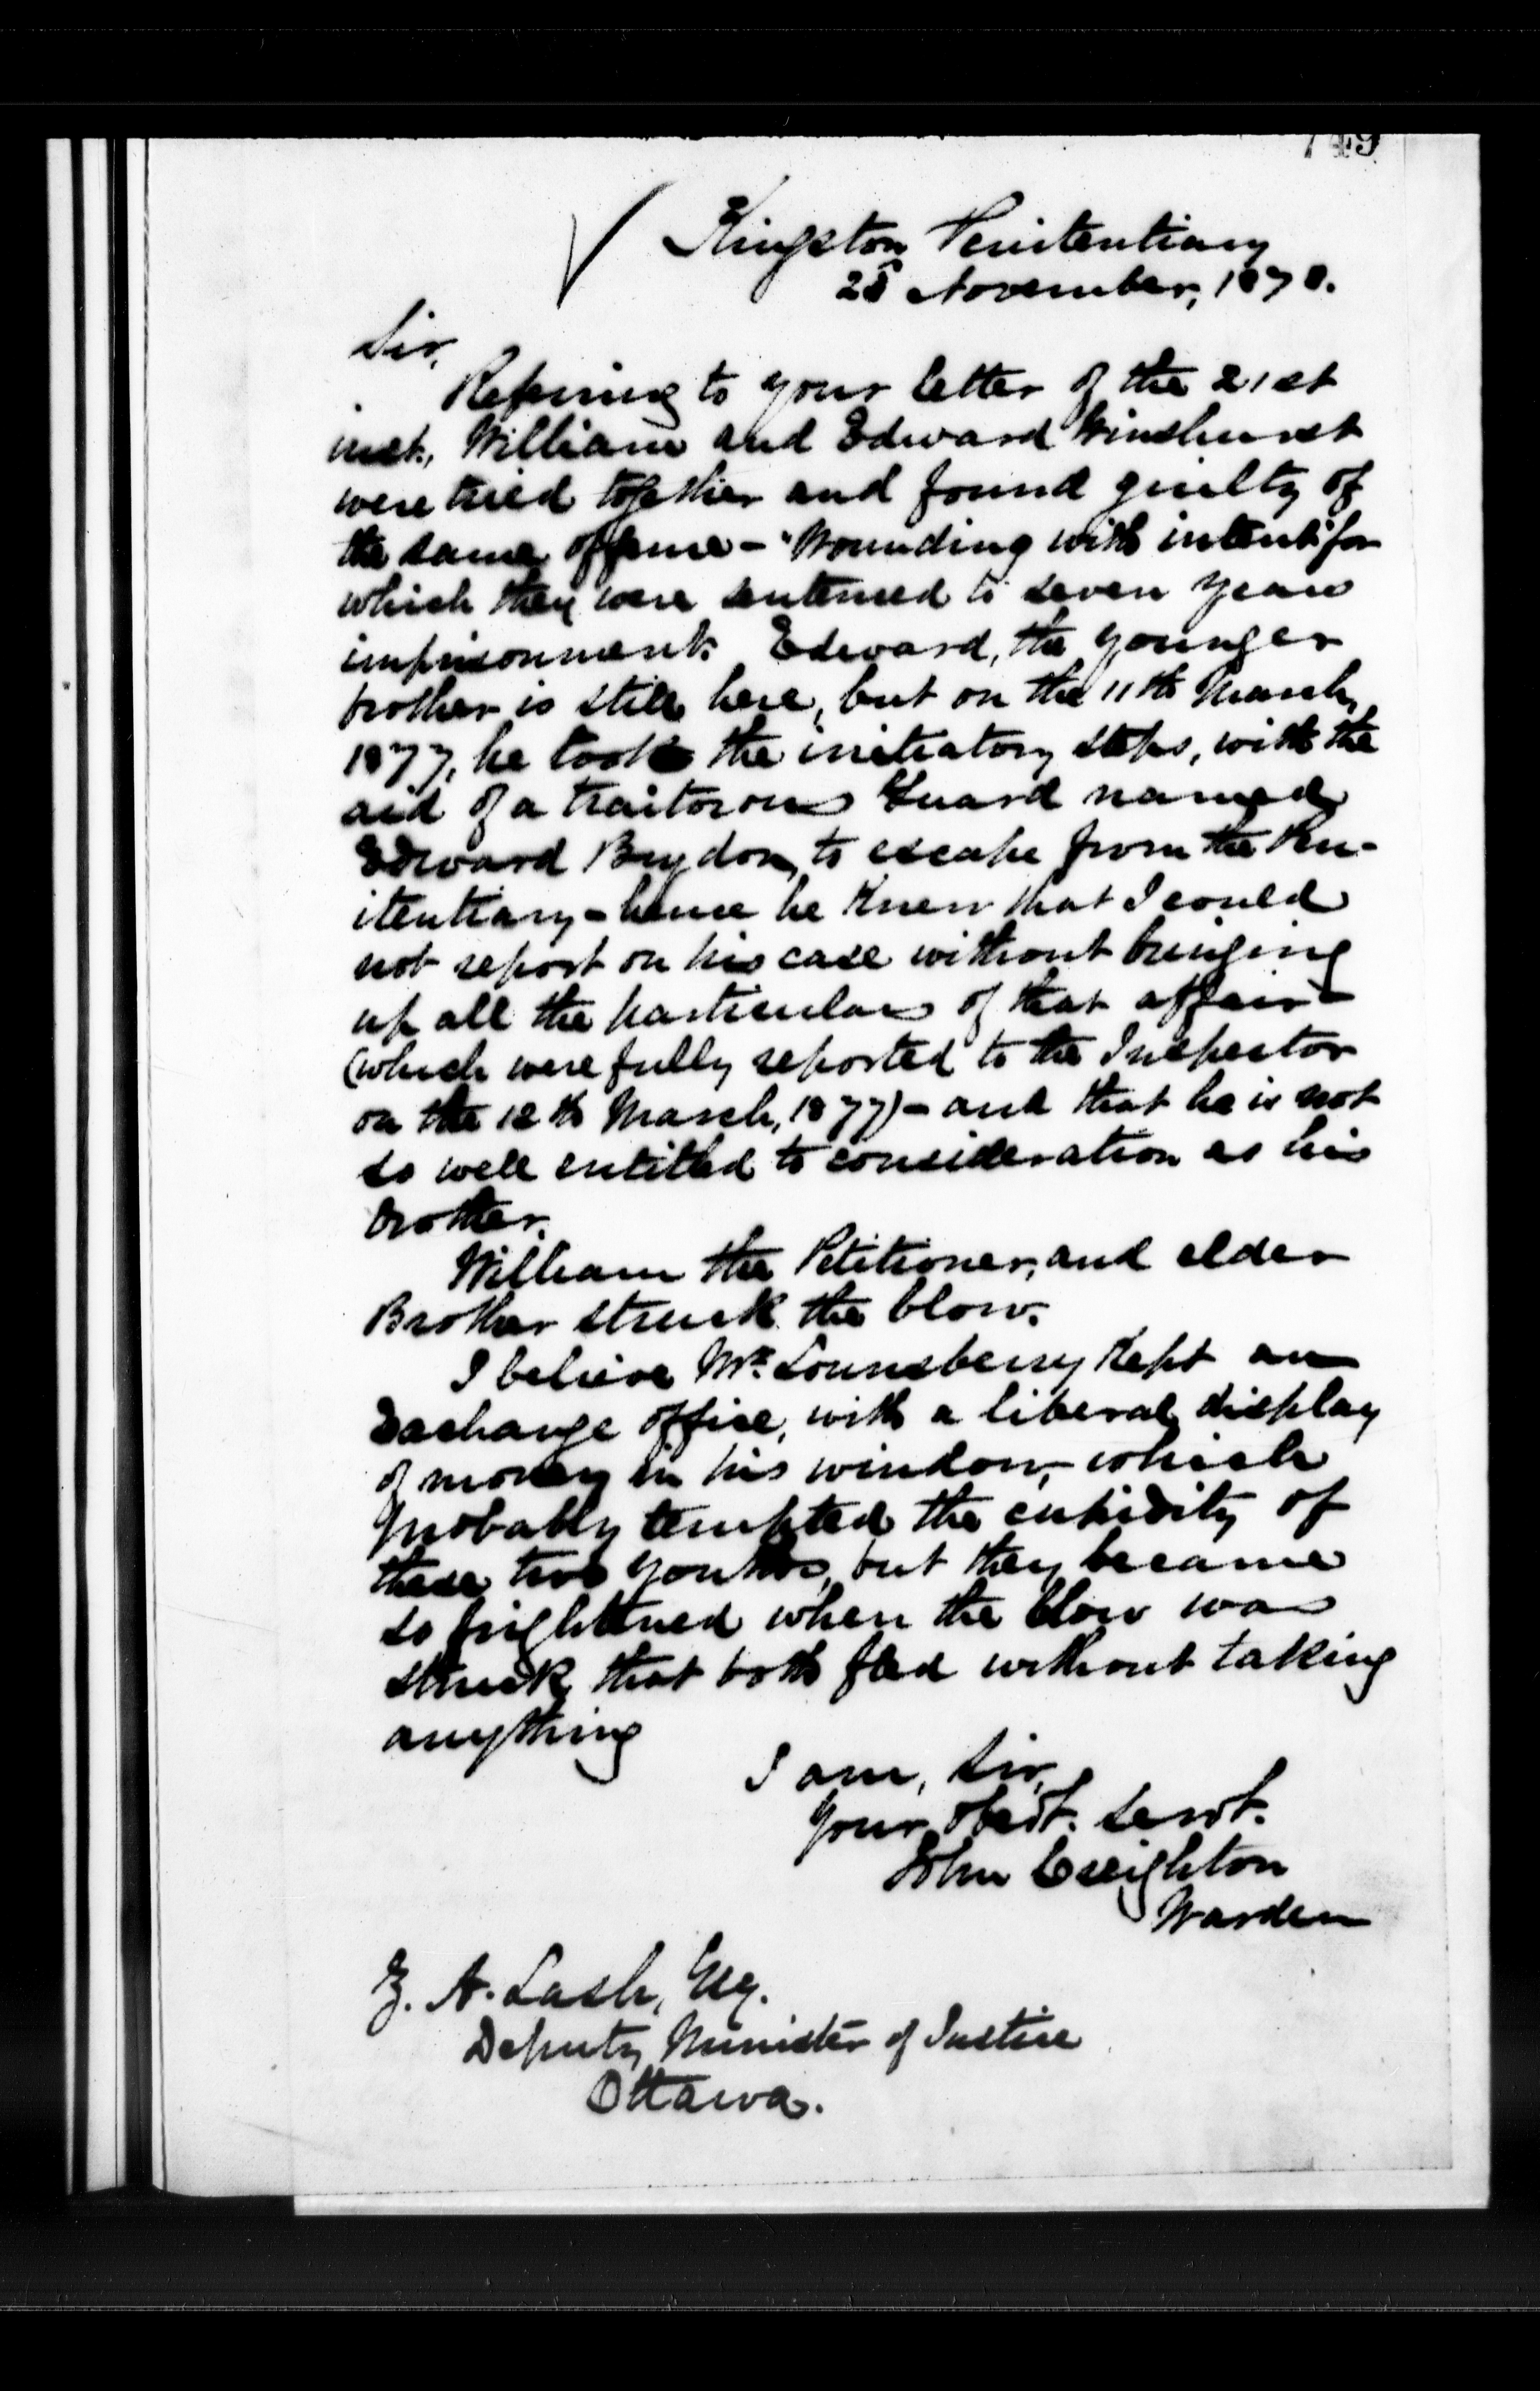 749
Kingston Penitentiary
25 November, 1878.
Sir,
Referring to your letter of the 21st
inst., William and Edward Winshurst
were tried together and found guilty of
the same offence - "Wounding with intent" for
which they were sentenced to seven years
imprisonment. Edward, the younger
brother is still here, but on the 11th March,
1877, he took the initiatory steps, with the
aid of a traitorous Guard named
Edward Brydon, to escape from the Pen-
itentiary - hence he knew that I could
not report on his case without bringing
up all the particulars of that affair -
(which were fully reported to the Inspector
on the 12th March, 1877) - and that he is not
so well entitled to consideration as his
brother.
William the Petitioner, and elder
Brother struck the blow.
I believe Mr. Lounsberry kept an
Exchange office, with a liberal display
of money in his window, which
probably tempted the cupidity of
these two youths, but they became
so frightened when the blow was
struck that both fled without taking
anything
I am, Sir,
Your Obedt. Servt.
John Creighton
Warden
Z. A. Lash, Esq.
Deputy Minister of Justice
Ottawa.